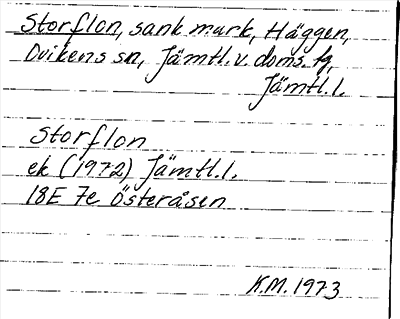 Storflon, sank mark, Häggen,
Ovikens sn, Jämtl. v. doms. tg,
Jämtl. l.
Storflon
ek (1972) Jämtl. l.
18E 7e Österåsen
K.M. 1973